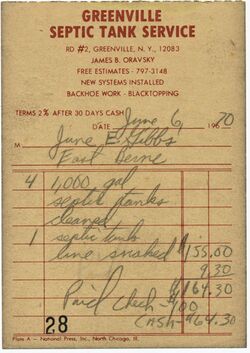 GREENVILLE
SEPTIC TANK SERVICE
RD #2, GREENVILLE, N. Y., 12083
JAMES B. ORAVSKY
FREE ESTIMATES - 797-3148
NEW SYSTEMS INSTALLED
BACKHOE WORK - BLACKTOPPING
TERMS 2% AFTER 30 DAYS CASH
DATE June 6, 1970
M June E. Gibbs
East Berne
4 1,000 gal
septic tanks
cleaned
1 septic tank
line snaked $155.00
9.30
$164.30
Paid Check - $100
CASH - $64.30
28
Form A - National Press, Inc., North Chicago, Ill.